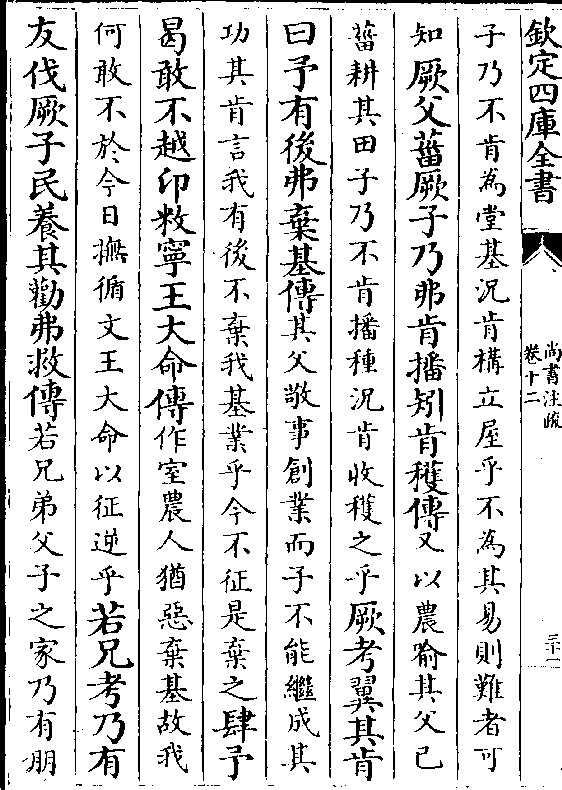 欽定四庫全書
尚書注疏
卷十二
子乃不肯為堂基況肯構立屋乎不為其易則難者可
知厥父菑厥子乃弗肯播矧肯穫傳又以農喻其父已
菑耕其田子乃不肯播種況肯收穫之乎厥考翼其肯
曰予有後弗棄基傳其父敬事創業而子不能繼成其
功其肯言我有後不棄我基業乎今不征是棄之肆予
曷敢不越卬敉寧王大命傳作室農人猶惡棄基故我
何敢不於今日撫循文王大命以征逆乎若兄考乃有
友伐厥子民養其勸弗救傳若兄弟父子之家乃有朋